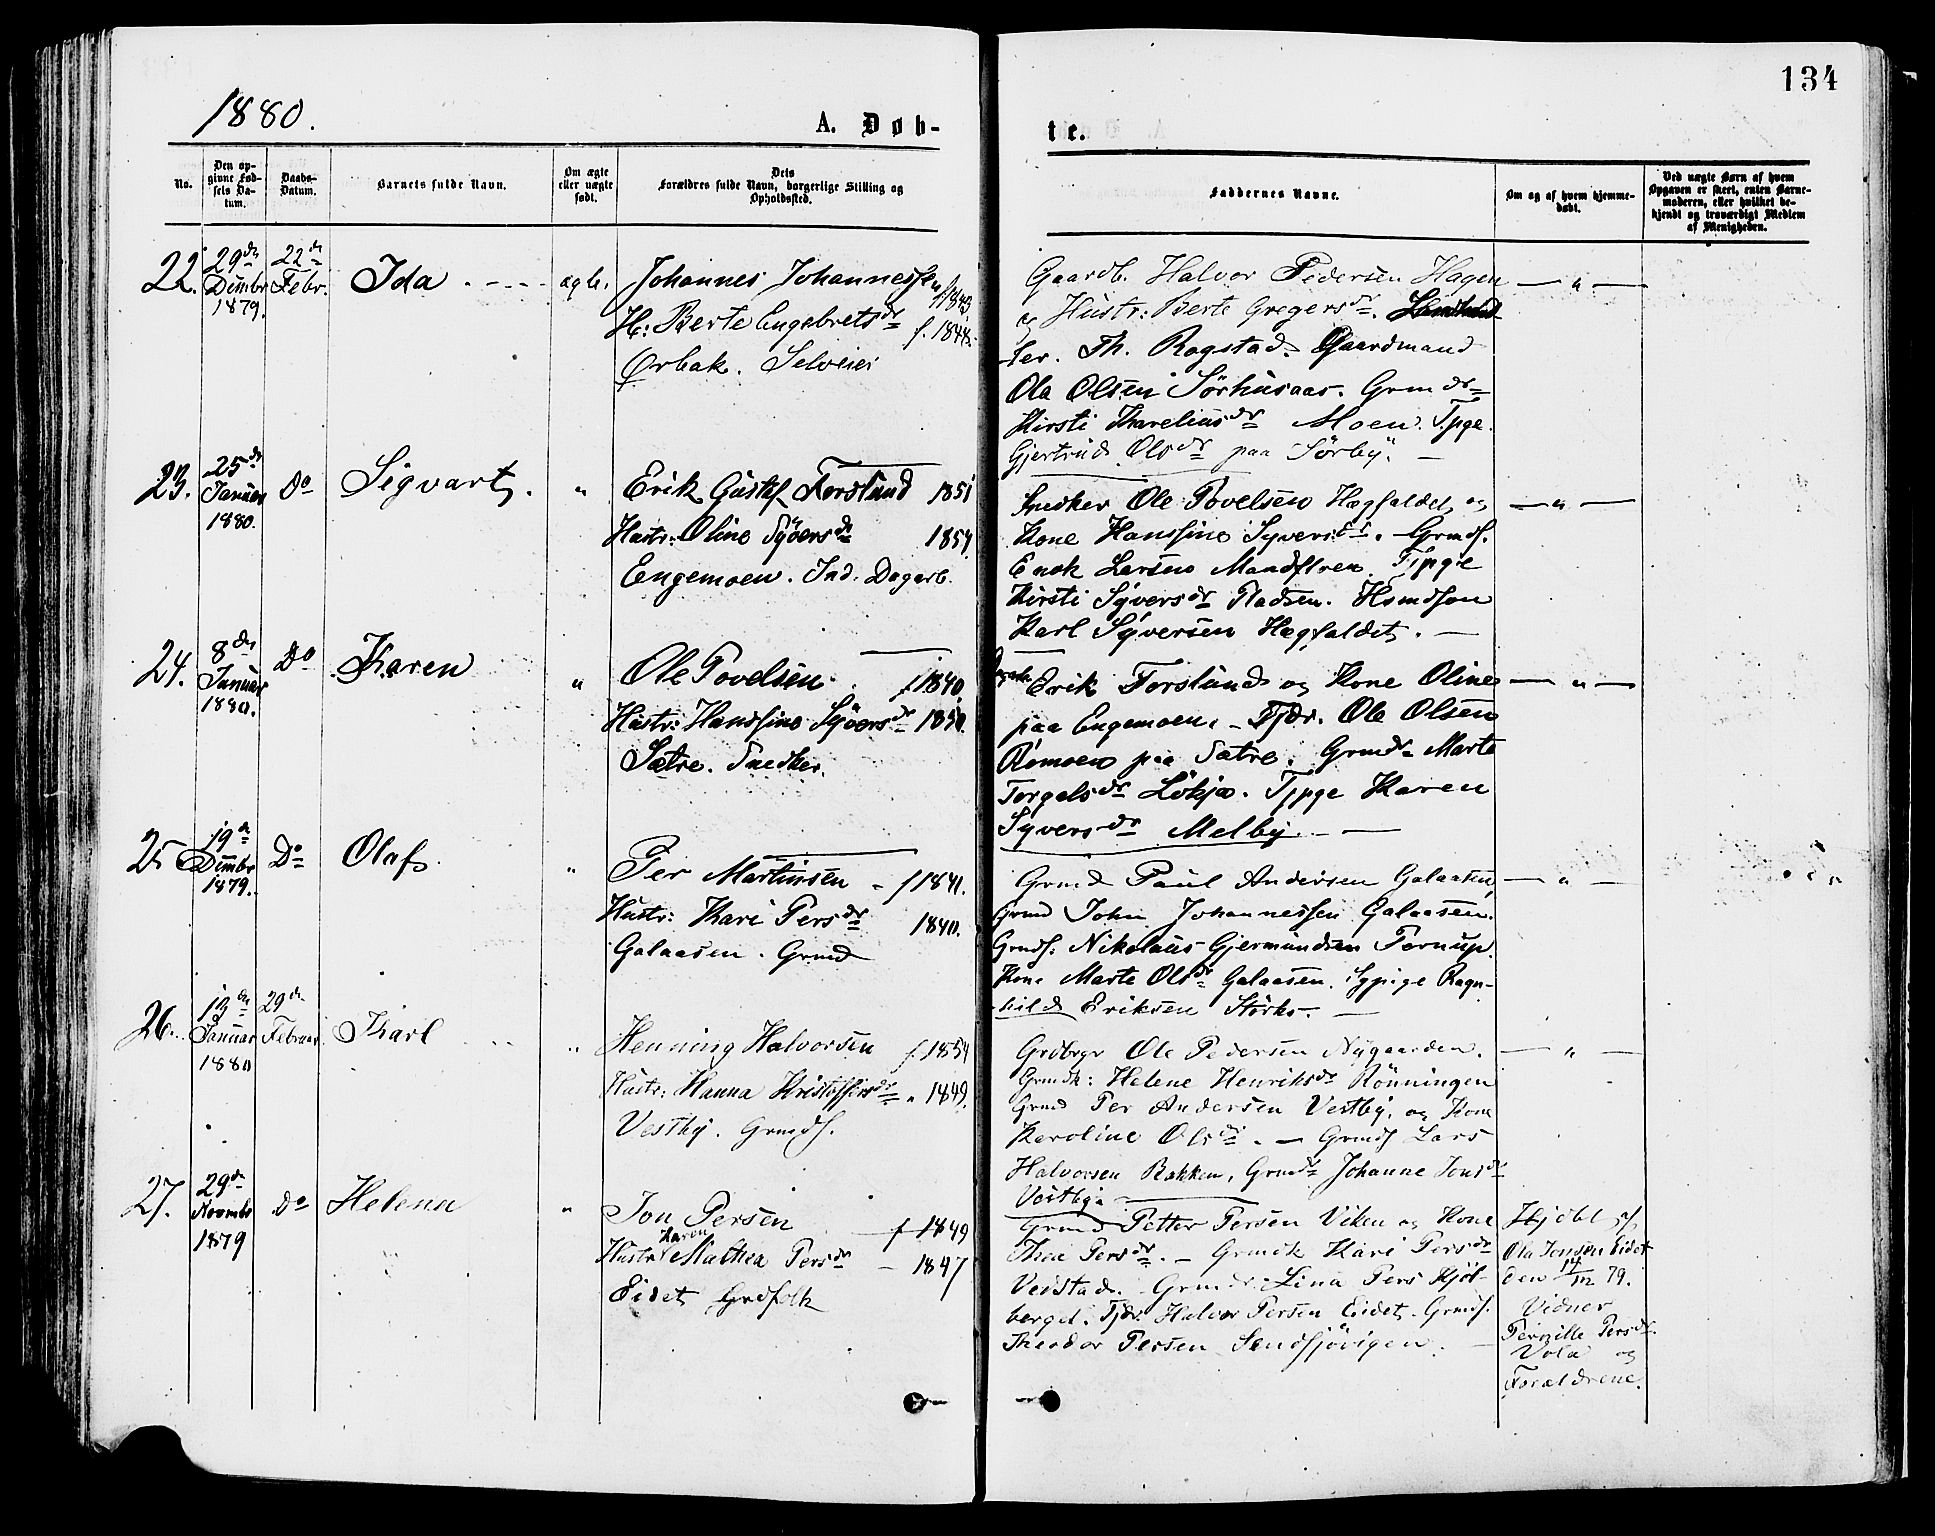 134
1880.
A. Døb-
te.
No.
Den op-
givne Fød-
sels Da-
tum.
Daabs-
Datum.
Barnets fulde Navn.
Om ægte
eller uægte
født.
Dets
Forældres fulde Navn, borgerlige Stilling og
Opholdssted.
Faddernes Navne.
Om og af hvem hjemme-
døbt.
Ved uægte Børn af hvem
Opgaven er skeet, enten Barne-
moderen, eller hvilket be-
kjendt og troværdigt Medlem
af Menigheden.
22.
29de
Dcmbr
1879.
22de
Febr.
Ida
ægte.
Johannes Johannessen f 1843.
H: Berte Engebretsdr f. 1844.
Ørbak. Selveier
Gaardb. Halvor Pedersen Hagen
og Hustr: Berte Gregersdr.
ler. Th. Rogstad. Gaardmand
Ola Olsen Sörhusaas. Grmdr
Kirsti Kareliusdr Moen. Tpge.
Gjertrud Olsdr paa Sörby. —
— " —
23.
25de
Januar
1880.
Do
Sigvart.
"
Erik Gustaf Forslund 1851
Hustr: Oline Syversdr 1854.
Engemoen. Ind. Dagarb.
Snedker Ole Povelsen Hægfaldet og
Kone Hanssine Syversdr. Grmds.
Enok Larsen
Kirsti Syversdr Pladsen.
Karl Syversen Hægfaldet. —
— " —
24.
8de
Januar
1880.
Do
Karen
"
Ole Povelsen. f 1840.
Hustr: Hanssine Syversdr 1850.
Sætre. Snedker.
Erik Forslund og Kone Oline
paa Engemoen. Tjdr. Ole Olsen
Römoen paa Sætre. Grmdr Marte
Torgelsdr Lökja. Tjpge Karen
Syversdr Melby. —
— " —
25
19de
Dcmbr
1879.
Do
Olaf.
"
Per Martinsen f 1841.
Hustr: Kari Persdr 1840.
Galaasen. Grmd
Grmd Paul Andersen Galaasen,
Grmd John Johannessen Galaasen.
Grmds: Nikolaus Gjermundsen Tornup.
Kone Marte Olsdr Galaasen. Sypige Ragn-
hild Eriksen Störks. —
— " —
26.
13de
Januar
1880
29de
Februar
Karl
"
Henning Halvorsen f. 1854
Hustr: Hanna Kristoffersdr " 1849.
Vestby. Grmds.
Grdbrgr Ole Pedersen Nygaarden.
Grmdk: Helene Henriksdr Rönningen
Grmd Per Andersen Vestby. og Kone
Karoline Olsdr. — Grmds Lars
Halvorsen Bakken, Grmdr Johanne Jonsdr
Vestby.
— " —
27.
29de
Novmbr
1879
Do
Helena
"
Jon Persen f 1849
Hustr: Karen Mathea Persdr — 1847
Eidet, Grdfolk
Grmd Petter Persen Viken og Kone
Thea Persdr. — Grmdk Kari Persdr
Veistad. Grmdr: Lina Pers Kjöl-
berget. Tjdr. Halvor Persen Eidet. Grmds.
Theodor Persen Sendsjövigen. —
Hjdbt af
Ola Jonsen Eidet
den 14/12 79.
Vidner
Pernille Persdr
Vola og
Forældrene.